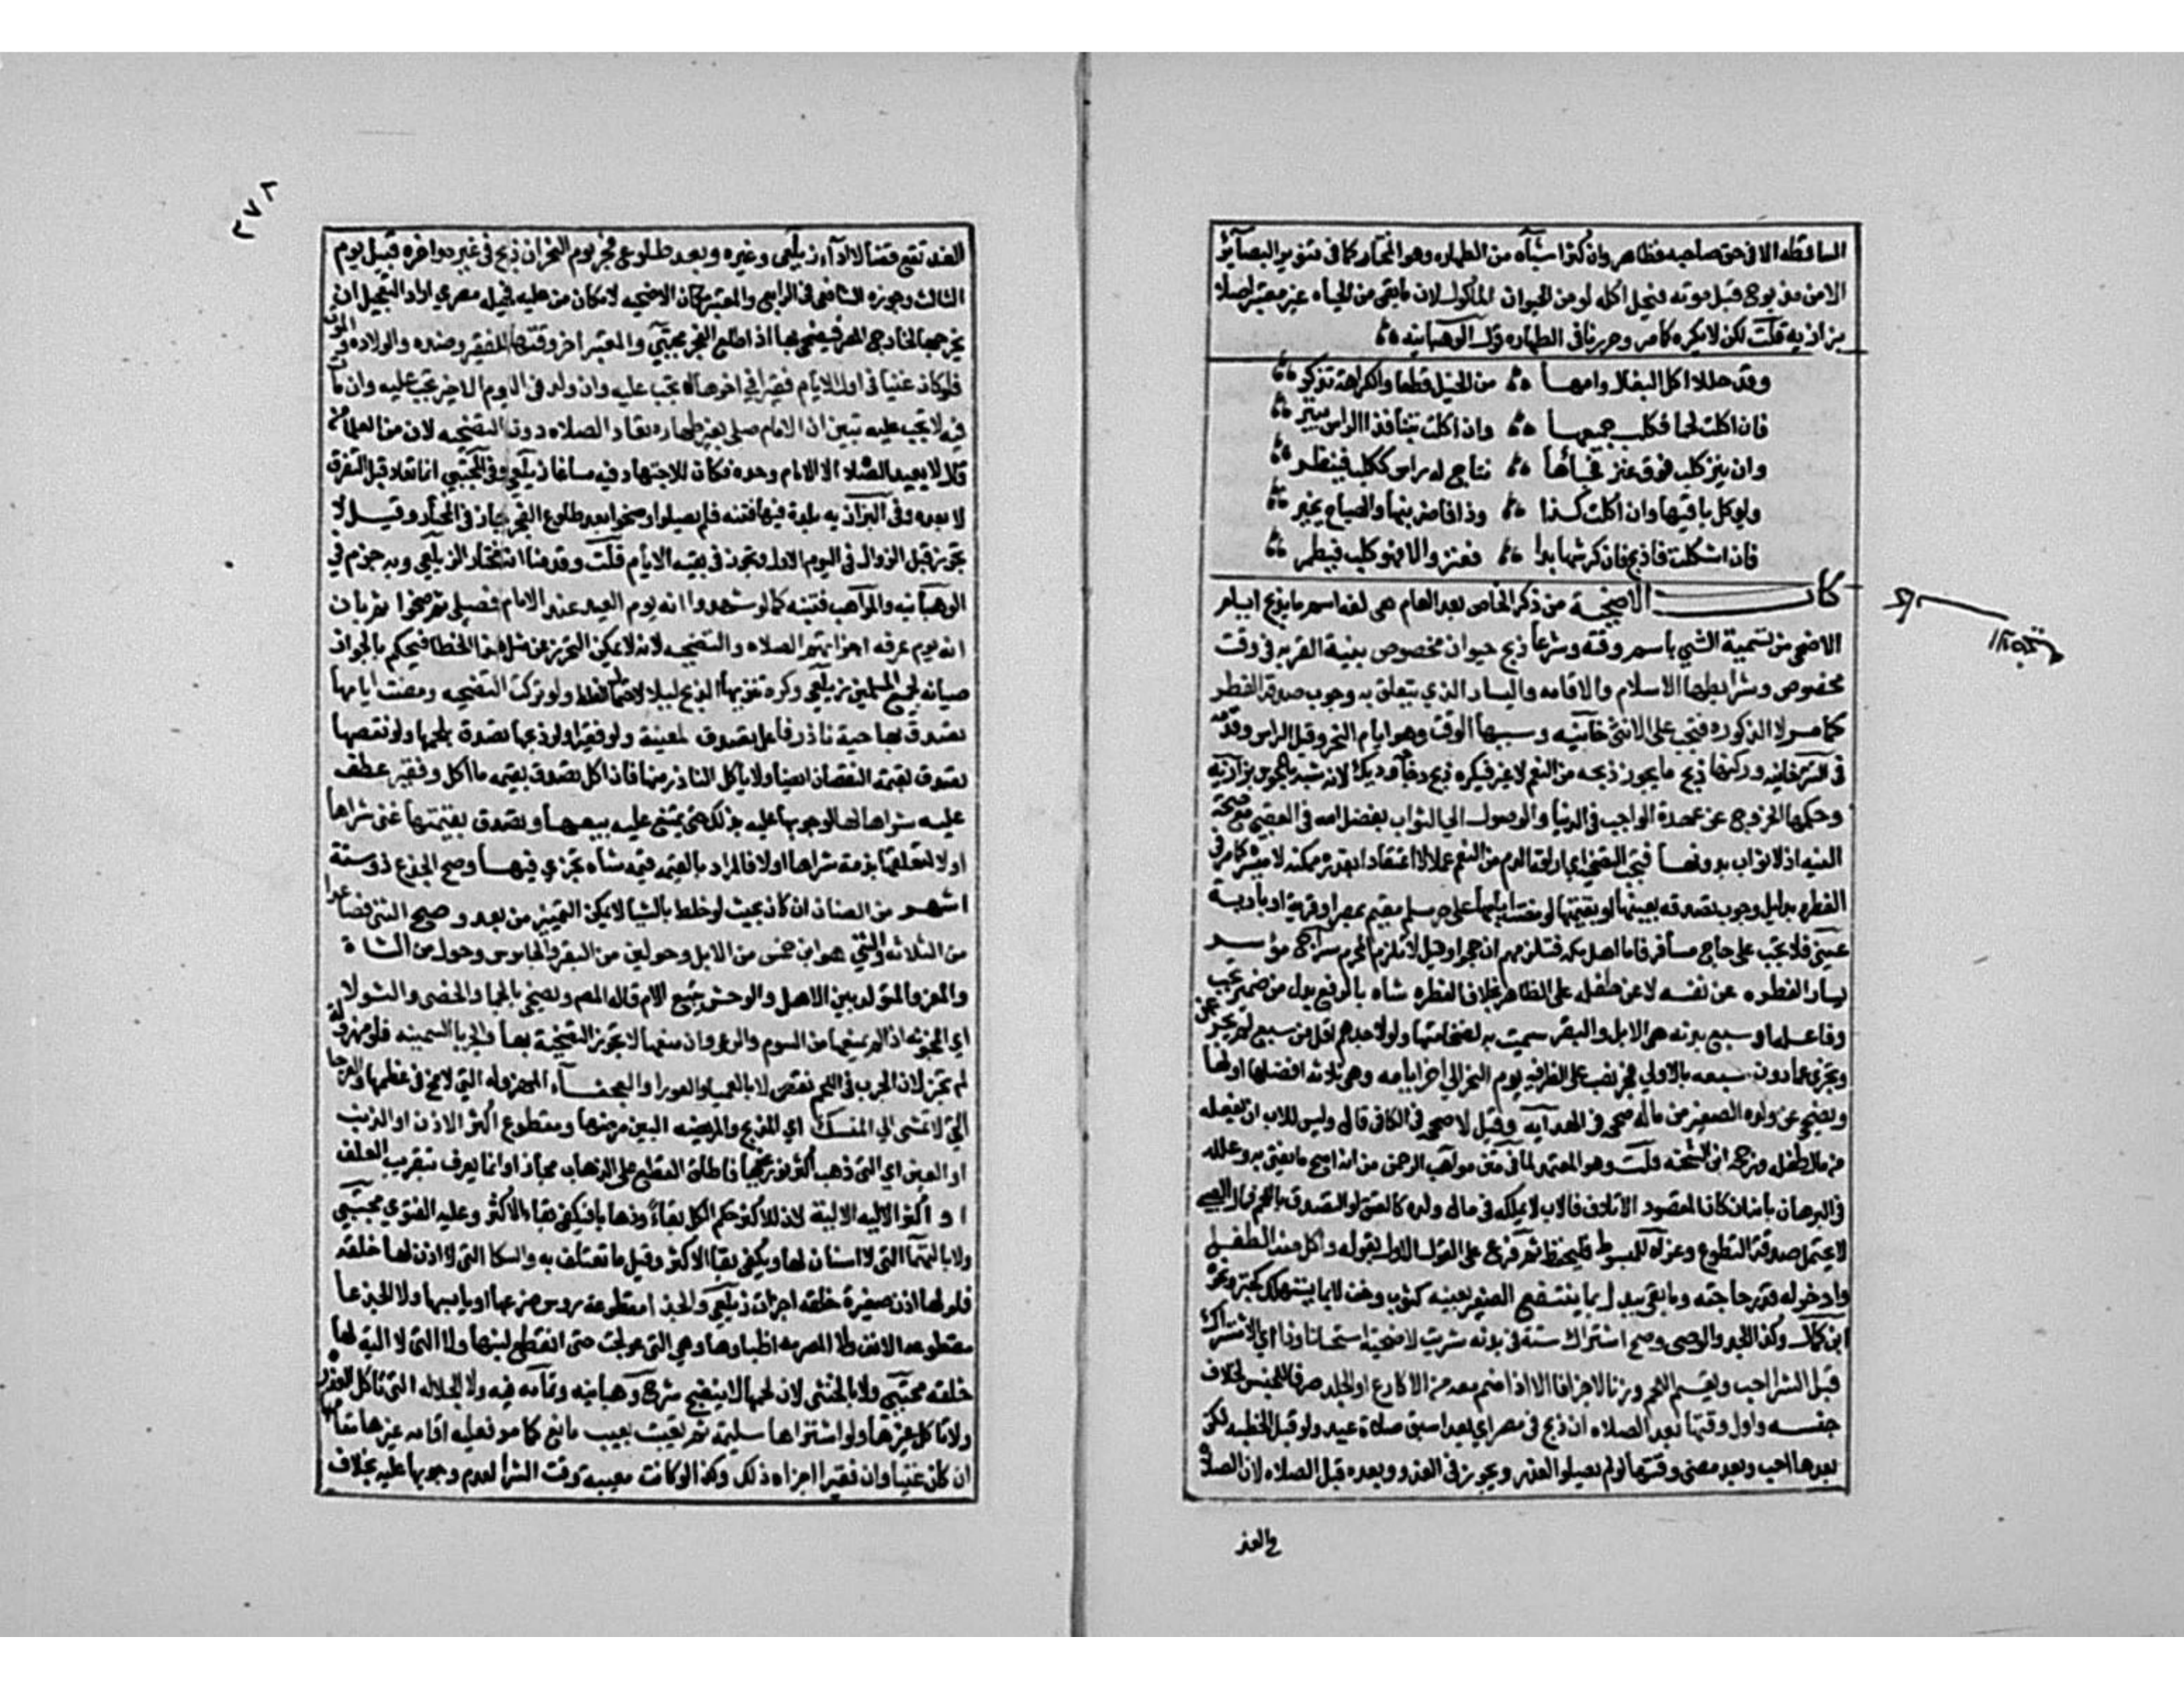 الساقطه الا في حق صاحبه فطاهر وان كثر اشباه من الطهاره وهو المختار كما في تنوير البصائر
الا من مذبوح قبل موته فيحل اكله لو من الحيوان الماكول لان ما بقي من الحياه غير معتبر اصلا
بزازيه قلت لكن لا يكره كما مر وحررناه في الطهاره وفي الوهبانيه
وقد حللا اكل البغال وامها من الخيل قطعا والكراهة تذكر
فان اكلت لحما فكلب جميعها وان اكلت تبنا فذا الراس يبتر
وان ينز كلب فوق عنز فجاءها نتاج له راس ككلب فينظر
ويوكل باقيها وان اكلت لذا وذا فاضربنها والصياح يخبر
فان اشكلت فاذبح فان كرشها بدا فعنز والا فهو كلب فيطمر
كتاب الاضحية من ذكر الخاص بعد العام هي لغه اسم لما يذبح ايام
الاضحى من تسمية الشي باسم وقته وشرعا ذبح حيوان مخصوص بنية القربه في وقت
مخصوص وشرايطها الاسلام والاقامه واليسار الذي يتعلق به وجوب صدقة الفطر
كما مر لا الذكوره فتجب على الانثى خانيه وسببها الوقت وهو ايام النحر وقيل الراس وقدمه
في التترخانيه وركنها ذبح ما يجوز ذبحه من النعم لا غير فيكره ذبح دجاجه وديك لانه تشبه بالمجوس بزازيه
وحكمها الخروج عن عهدة الواجب في الدنيا والوصول الي الثواب بفضل الله في العقبي مع صحة
النيه اذ لا ثواب بدونها فتجب التضحيه اي اراقة الدم من النعم عملا لا اعتقادا بقدره ممكنه لا ميسره كما مر في
الفطره بدليل وجوب تصدقه بعينها او بقيمتها لو مضت ايامها على حر مسلم مقيم بمصر او قرية او بادية
عيني فلا تجب على حاج مسافر فاما اهل مكه فتلزمهم ان حجوا وقيل لا تلزم المحرم سراج موسر
يسار الفطره عن نفسه لا عن طفله على الظاهر بخلاف الفطره شاه بالرفع بدل من ضمير تجب
وفاعله او سبع بدنه هي الابل والبقر سميت به لضخامتها ولو لاحدهم اقل من سبع لم يجز عن
وتجزي عما دون سبعه بالاولي فجر نصب على الظرفيه يوم النحر الي اخر ايامه وهي ثلاثه افضلها اولها
ويضحي عن ولده الصغير من ماله صححه في الهدايه وقيل لا صححه في الكافي قال وليس للاب ان يفعله
من مال طفله ورجحه ابن الشحنه قلت وهو المعتمد لما في متن مواهب الرحمن من انه اصح ما يفتى به وعلله
في البرهان بانه ان كان المقصود الاتلاف فالاب لا يملكه في مال ولده كالعتق او التصدق باللحم فمال الصبي
لا يحتمل صدقة التطوع وعزاه للمبسوط فليحفظ ثم فرع على القول الاول بقوله واكل منه الطفل
وادخر له قدر حاجته وما بقي يبدل بما ينتفع الصغير بعينه كثوب وخف لا بما يستهلك كخبز ونحوه
ابن كمال وكذا الجد والوصي وصح اشتراك ستة في بدنه شريت لاضحية استحسانا وذا اي الاشتراك
قبل الشرا احب ويقسم اللحم وزنا لا جزافا الا اذا ضم معه من الاكارع او الجلد صرفا للجنس لخلاف
جنسه واول وقتها بعد الصلاه ان ذبح في مصر اي بعد اسبق صلاة عيد ولو قبل الخطبه لكن
بعدها احب وبعد مضي وقتها لو لم يصلوا لعذر ويجوز في الغد وبعده قبل الصلاه لان الصلاه
في الغد
٣٧٢
الغد تقع قضا لا اداء زيلعي وغيره وبعد طلوع فجر يوم النحر ان ذبح في غيره واخره قبيل يوم
الثالث وجوزه الشافعي في الرابع والمعتبر مكان الاضحيه لا مكان من عليه فحيله مصري اراد التعجيل ان
يخرجها لخارج المصر فيضحي بها اذا طلع الفجر مجتبى والمعتبر اخر وقتها للفقير وضده والولاده والموت
فلو كان غنيا في اول الايام فقيرا في اخرها لا تجب عليه وان ولد في اليوم الاخير تجب عليه وان مات
فيه لا تجب عليه تبين ان الامام صلى بغير طهاره تعاد الصلاه دون التضحيه لان من العلماء من
قال لا يعيد الصلاه الا الامام وحده فكان للاجتهاد فيه مساغا زيلعي وفي المجتبى انما تعاد قبل التفرق
لا بعده وفي البزازيه بلدة فيها فتنه فلم يصلوا وضحوا بعد طلوع الفجر جاز في المختار وقيل لا
تجوز قبل الزوال في اليوم الاول وتجوز في بقيه الايام قلت وقدمنا انه مختار الزيلعي وبه جزم في
الوهبانيه والمواهب فتنبه كما لو شهدوا انه يوم العيد عند الامام فصلى ثم ضحوا ثم بان
انه يوم عرفه اجزاتهم الصلاه والتضحيه لانه لا يمكن التحرز عن مثل هذا الخطا فيحكم بالجواز
صيانه لجميع المسلمين زيلعي وكره تنزيها الذبح ليلا لاحتمال الغلط ولو تركت التضحيه ومضت ايامها
تصدق بها حية ناذر فاعل تصدق لمعينة ولو فقيرا ولو ذبحها تصدق بلحمها ولو نقصها
تصدق بقيمة النقصان ايضا ولا ياكل الناذر منها فان اكل تصدق بقيمه ما اكل وفقير عطف
عليه شراها لها لوجوبها عليه بذلك حتى يمتنع عليه بيعها وتصدق بقيمتها غني شراها
اولا لتعلقها بذمته شراها اولا فالمراد بالقيمه قيمه شاه تجزي فيها وصح الجذع ذو ستة
اشهر من الضان ان كان بحيث لو خلط بالثنايا لا يمكن التمييز من بعد وصح الثني فصاعدا
من الثلاثه والثني هو ابن خمس من الابل وحولين من البقر والجاموس وحول من الشاة
والمعز والمتولد بين الاهلي والوحشي يتبع الام قاله المصنف ويضحي بالجما والخصي والثولا
اي المجنونه اذا لم يمنعها من السوم والرعي وان منعها لا تجوز التضحية بها والجربا السمينه فلو مهزولة
لم تجز لان الجرب في اللحم نقص لا بالعميا والعورا والعجفاء المهزوله التي لا مخ في عظمها والعرجا
التي لا تمشي الي المنسك اي المذبح والمريضه البين مرضها ومقطوع اكثر الاذن او الذنب
او العين اي التي ذهب اكثر نور عينها فاطلق القطع على الذهاب مجازا وانما يعرف بتقريب العلف
او اكثر الاليه الالية لان للاكثر حكم الكل بقاء وذهابا فيكفي بقاء الاكثر وعليه الفتوى مجتبى
ولا بالهتما التي لا اسنان لها ويكفي بقا الاكثر وقيل ما تعتلف به والسكا التي لا اذن لها خلقه
فلو لها اذن صغيرة خلقه اجزات زيلعي والجذا مقطوعة روس ضرعها او يابسها ولا الجدعا
مقطوعه الانف ولا المصرمه اطباوها وهي التي عولجت حتى انقطع لبنها ولا التي لا اليه لها
خلقه مجتبى ولا بالخنثى لان لحمها لا ينضج شرح وهبانيه وتمامه فيه ولا الجلاله التي تاكل العذره
ولا تاكل غيرها ولو اشتراها سليمة ثم تعيبت بعيب مانع كما مر فعليه اقامه غيرها مقامها
ان كان غنيا وان فقيرا اجزاه ذلك وكذا لو كانت معيبه وقت الشرا لعدم وجوبها عليه بخلاف